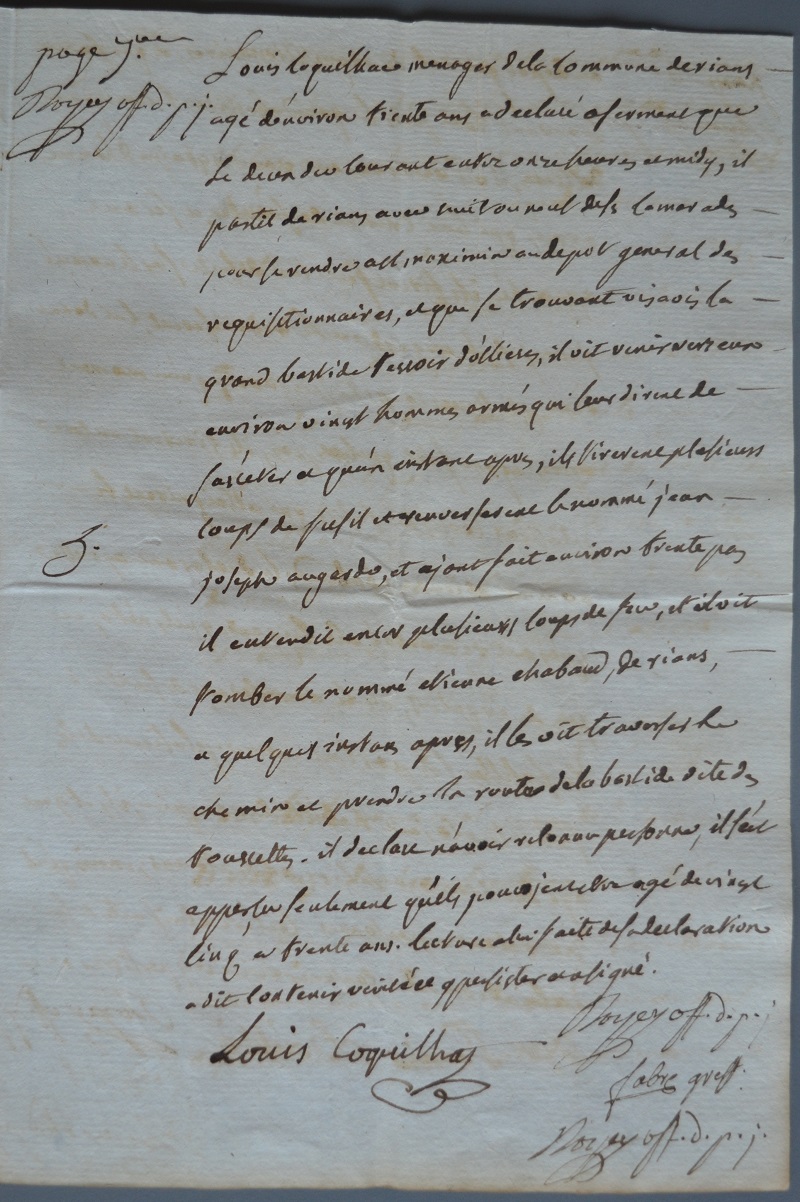 page 7me
Royer off. d. p. j.
Louis Coquilhac menager de la Commune de rians
agé d'environ trente ans a declaré a serment que
le decendeu Courant entre onze heures et midy, il
partit de rians avec huit ou neuf de ses Camarades
pour se rendre a St maximin au depot general des
requisitionnaires, et que se trouvant visavis la
grand bastide terroir d'ollieres, il vit venir vers eux
environ vingt hommes armés qui leur dirent de
s'arreter et qu'un instant apres, ils tirerent plusieurs
Coups de fusil et renverserent le nommé jean
3.
joseph augarde, et ajant fait environ trente pas
il entendit encor plusieurs Coups de feu, et il vit
tomber le nommé etienne chabaud, de rians,
et quelques instans apres, il les vit traverser le
chemin et prendre la route de la bastide dite des
. il declare n'avoir reconnu personne, il s'est
apperçu seulement qu'ils pouvojent etre agé de vingt
Cinq a trente ans. lecture a lui faite de sa declaration
a dit Contenir verité et y persister et a signé.
Royer off. d. p. j
Louis Coquilhac
fabre greff.
Royer off. d. p. j.